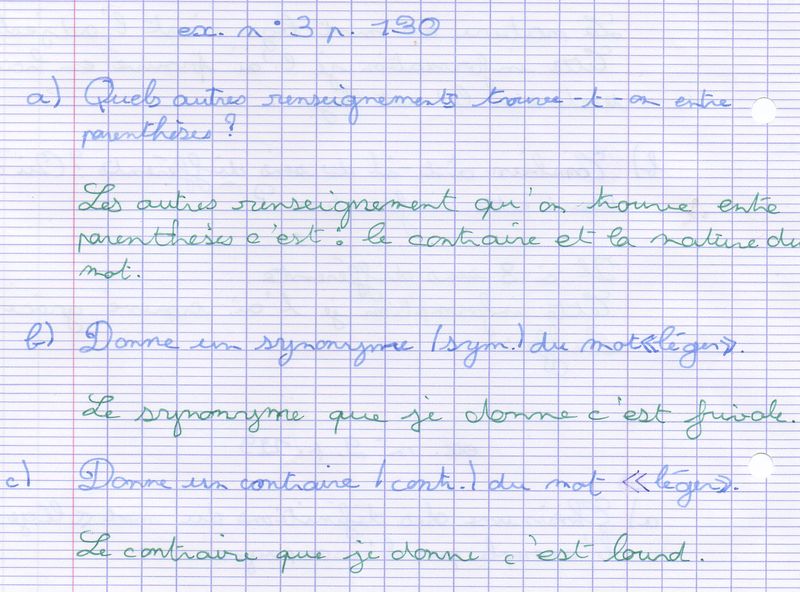 ex. n° 3 p. 190
a) Quels autres renseignements trouve-t-on entre
parenthèses ?
Les autres renseignement qu'on trouve entre
parenthèses c'est : le contraire et la nature du
mot.
b) Donne un synonyme (sym.) du mot «léger».
Le synonyme que je donne c'est frivole.
c) Donne un contraire (contr.) du mot «léger».
Le contraire que je donne c'est lourd.